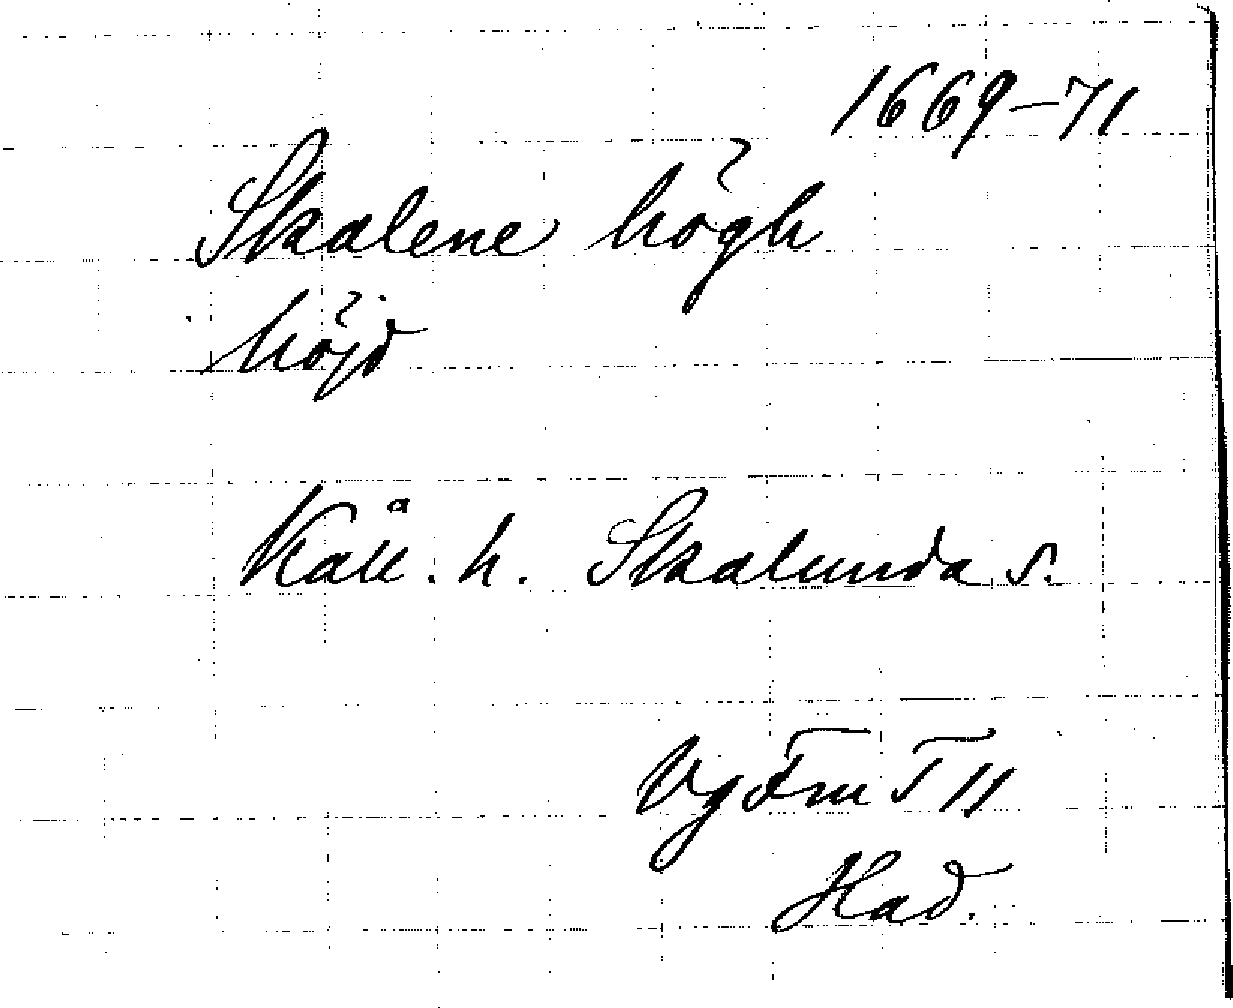 1669-71
Skalene högh
höjd
Kåll. h. Skalunda s.
Vg Fm T 11
Had.